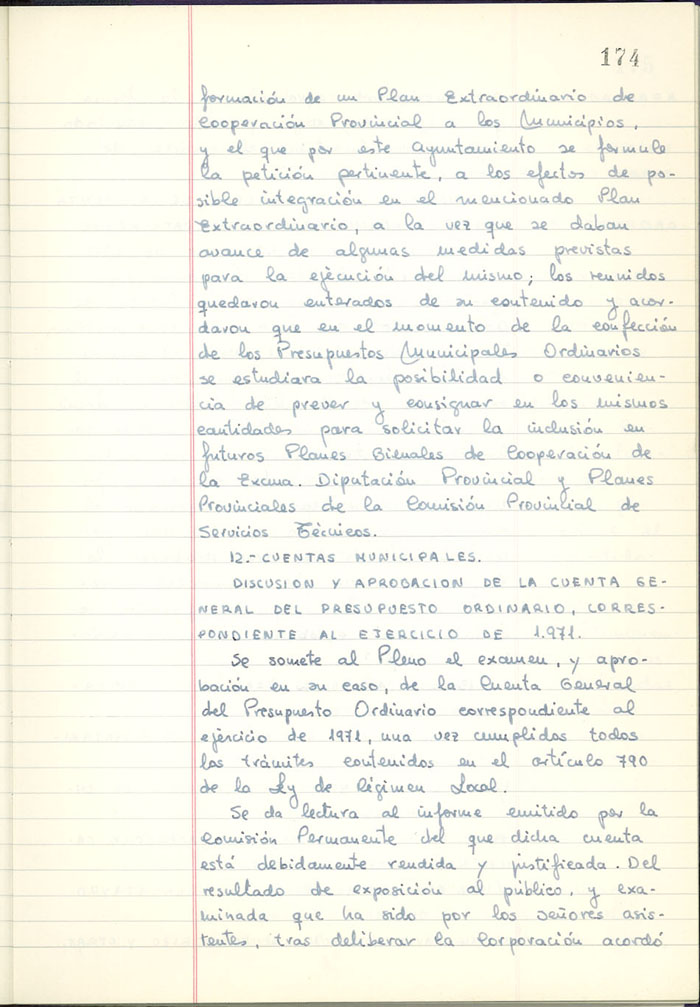 174
formación de un Plan Extraordinario de
Cooperación Provincial a los Municipios,
y el que por este Ayuntamiento se formule
la petición pertinente, a los efectos de po-
sible integración en el mencionado Plan
Extraordinario, a la vez que se daban
avance de algunas medidas previstas
para la ejecución del mismo; los reunidos
quedaron enterados de su contenido y acor-
daron que en el momento de la confección
de los Presupuestos Municipales Ordinarios
se estudiara la posibilidad o convenien-
cia de prever y consignar en los mismos
cantidades para solicitar la inclusión en
futuros Planes Bienales de Cooperación de
la Excma. Diputación Provincial y Planes
Provinciales de la Comisión Provincial de
Servicios Técnicos.
12.- CUENTAS MUNICIPALES.
DISCUSION Y APROBACION DE LA CUENTA GE-
NERAL DEL PRESUPUESTO ORDINARIO, CORRES-
PONDIENTE AL EJERCICIO DE 1.971.
Se somete al Pleno el examen, y apro-
bación en su caso, de la Cuenta General
del Presupuesto Ordinario correspondiente al
ejercicio de 1971, una vez cumplidos todos
los trámites contenidos en el artículo 790
de la Ley de Régimen Local.
Se da lectura al informe emitido por la
Comisión Permanente del que dicha cuenta
está debidamente rendida y justificada. Del
resultado de exposición al público, y exa-
minada que ha sido por los señores asis-
tentes, tras deliberar la Corporación acordó